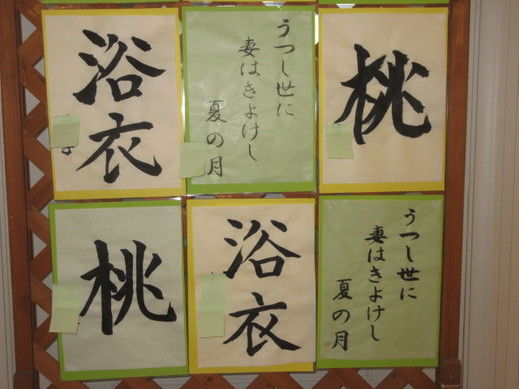 浴衣
うつし世に
妻はきよけし
夏の月
桃
桃
浴衣
うつし世に
妻はきよけし
夏の月